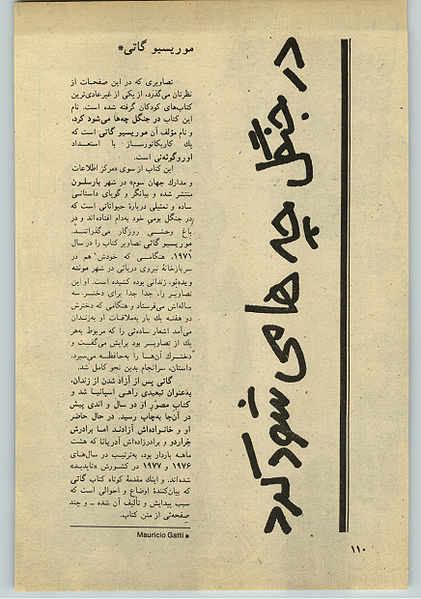 در جنگل چه ها می شود کرد
موریسیو گاتی*
تصاویری که در این صفحات از
نظرتان می‌گذرد، از یکی از غیرعادی‌ترین
کتاب‌های کودکان گرفته شده است. نام
این کتاب در جنگل چه‌ها می‌شود کرد،
و نام مؤلف آن موریسیو گاتی است که
یك کاریکاتورساز با استعداد
اوروگوئه‌ئی است.
این کتاب از سوی «مرکز اطلاعات
و مدارك جهان سوم» در شهر بارسلون
منتشر شده و بیانگر و گویای داستانی
ساده و تمثیلی دربارۀ حیواناتی است که
در جنگل بومی خود به‌دام افتاده‌اند و در
باغ وحشی روزگار می‌گذرانند.
موریسیو گاتی تصاویر کتاب را در سال
۱۹۷۱، هنگامی که خودش هم در
سربازخانۀ نیروی دریائی در شهر مونته
ویده‌ئو، زندانی بوده کشیده است. او این
تصاویر را، جدا جدا برای دختر سه
ساله‌اش می‌فرستاد و هنگامی که دخترش
دو هفته یك بار به‌ملاقات او به‌زندان
می‌آمد اشعار ساده‌ئی را که مربوط به‌هر
یك از تصاویر بود برایش می‌گفت و
دخترك آن‌ها را به‌حافظه می‌سپرد.
داستان، سرانجام بدین نحو کامل شد.
گاتی پس از آزاد شدن از زندان،
به‌عنوان تبعیدی راهی اسپانیا شد و
کتاب مصوّر او دو سال و اندی پیش
در آن‌جا به‌چاپ رسید. در حال حاضر
او و خانواده‌اش آزادند اما برادرش
جراردو و برادرزاده‌اش آدریانا که هشت
ماهه باردار بود، به‌ترتیب در سال‌های
۱۹۷۶ و ۱۹۷۷ در کشورش «ناپدید»
شده‌اند. و اینك مقدمۀ کوتاه کتاب گاتی
که بیان‌کنندۀ اوضاع و احوالی است که
سبب پیدایش و تألیف آن شده ــ و چند
صفحه‌ئی از متن کتاب.
* Mauricio Gatti
۱۱۰